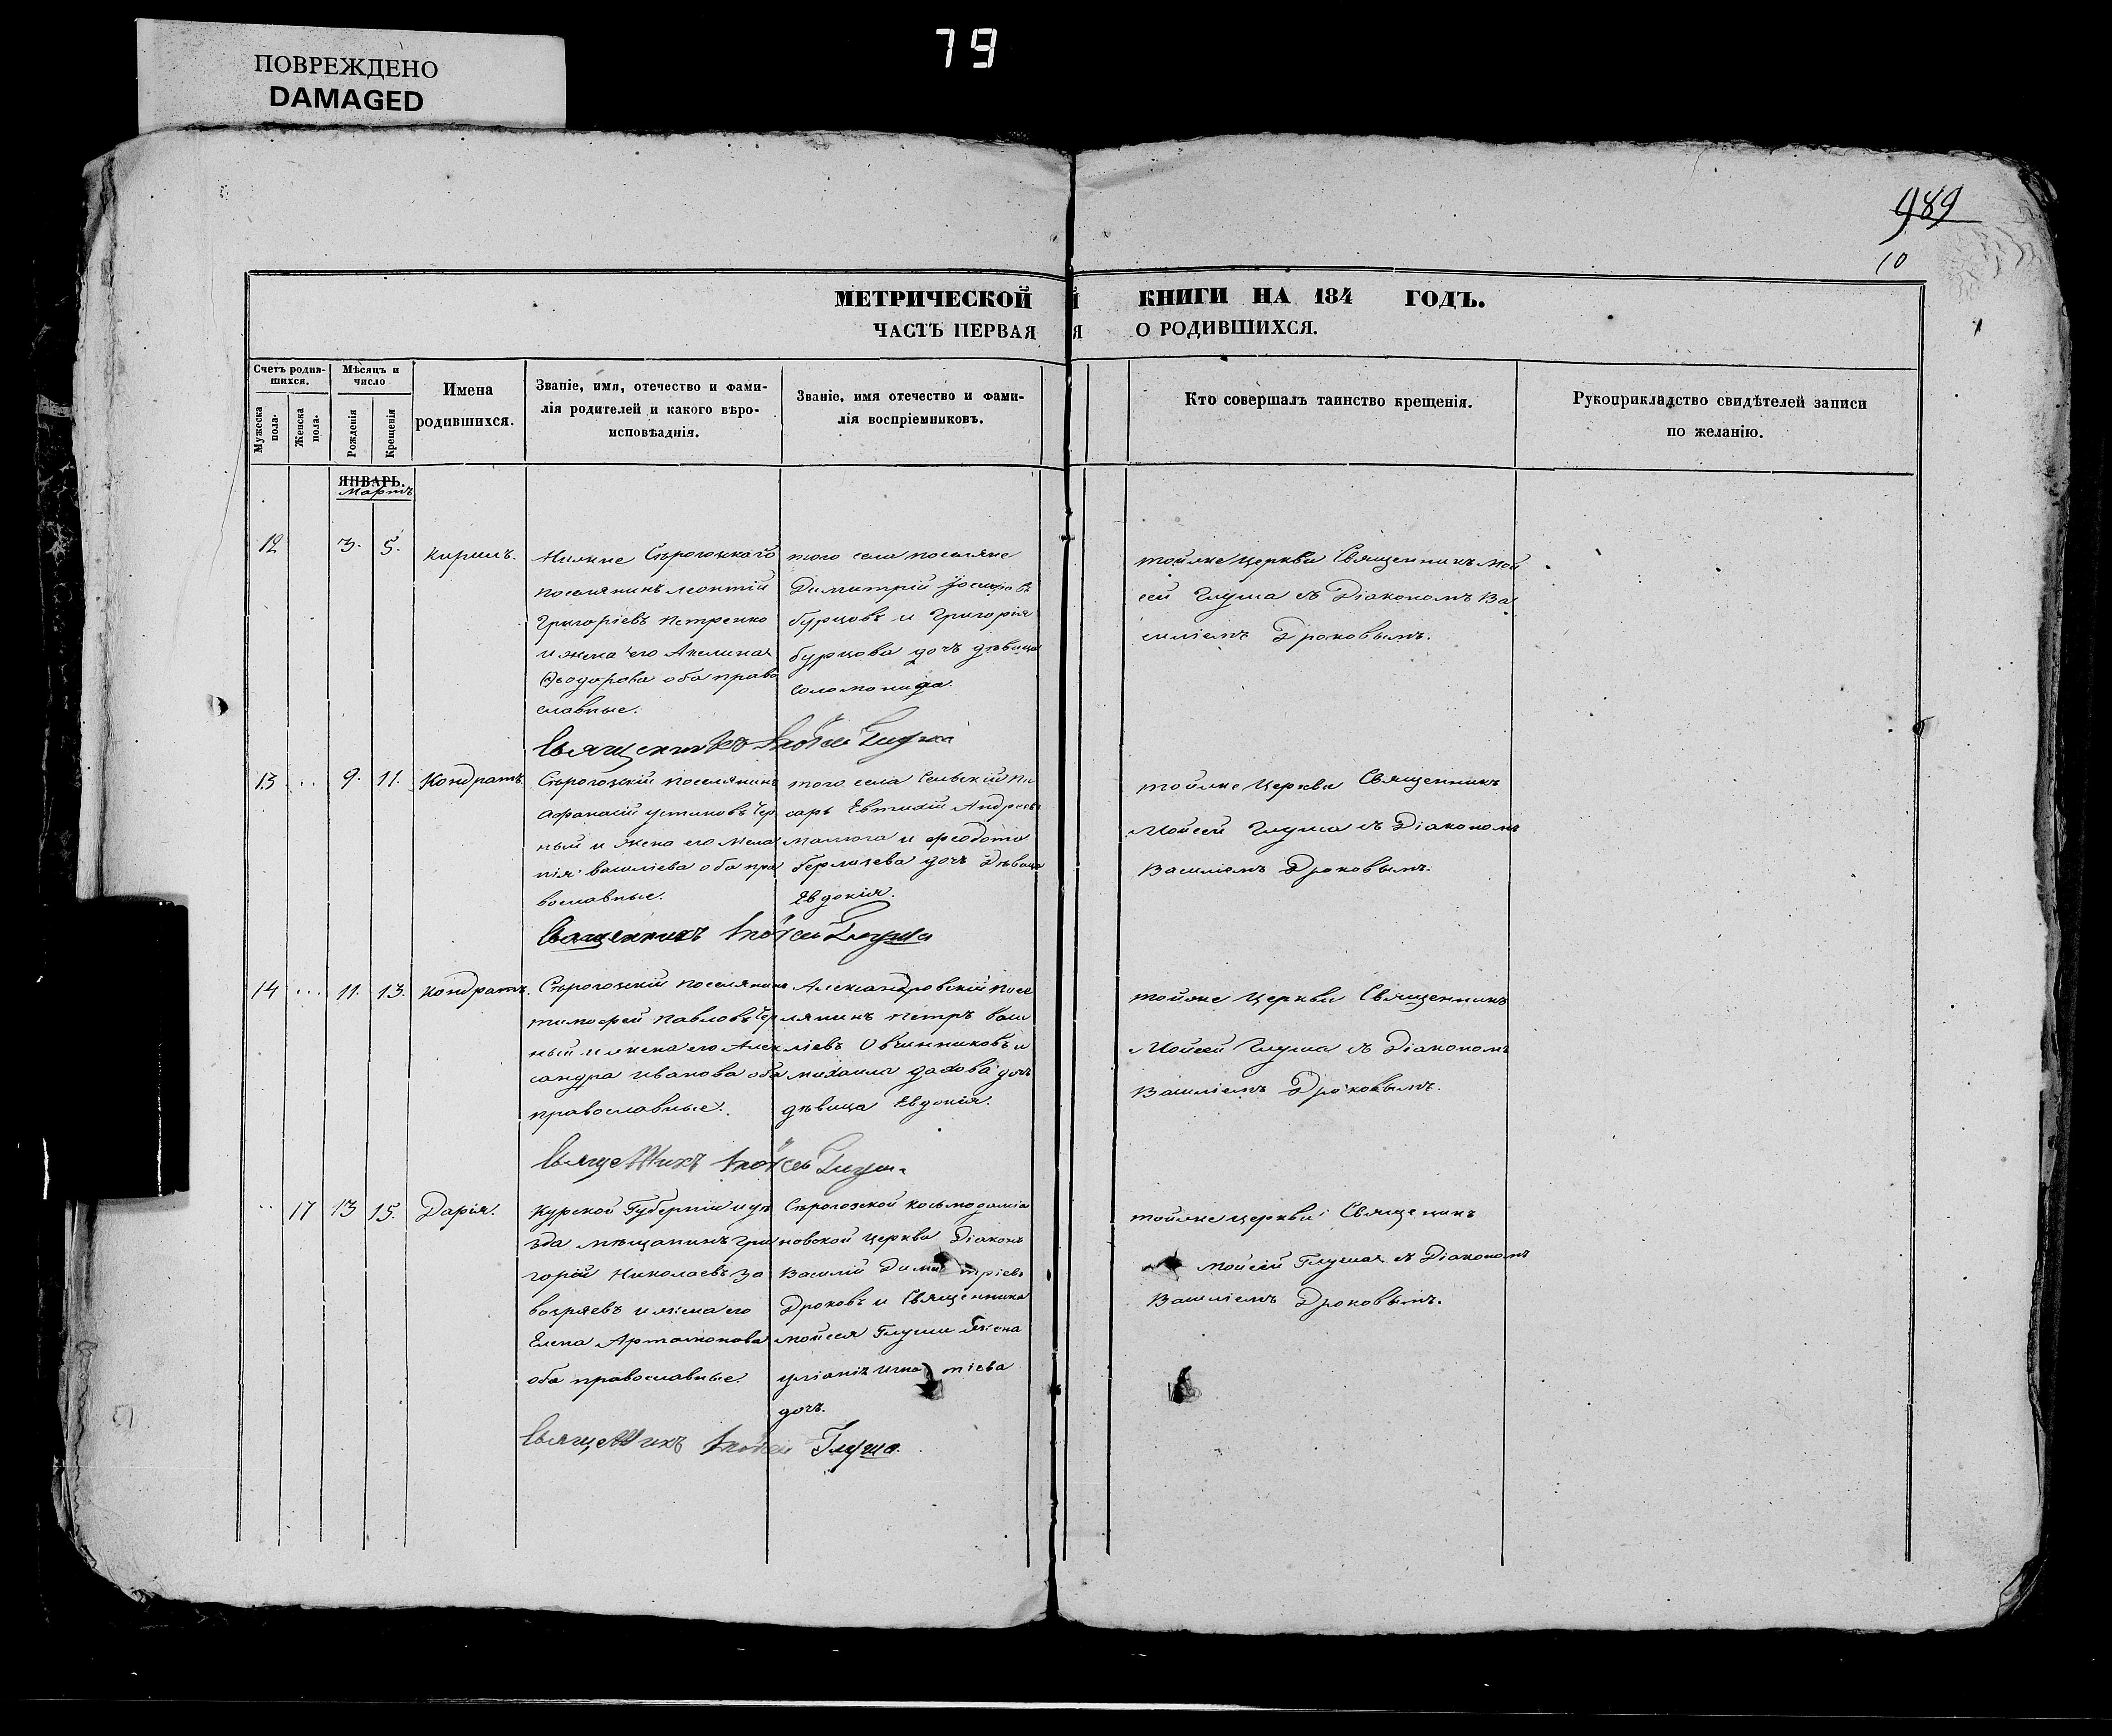 79
ПОВРЕЖДЕНО
DAMAGED
989
10
МЕТРИЧЕСКОЙ КНИГИ НА 184 ГОДЪ.
ЧАСТЬ ПЕРВАЯ О РОДИВШИХСЯ.
Счетъ родив-
шихся.
Мужеска
пола.
Женска
пола.
Мѣсяцъ и
число
Рожденія
Крещенія
Имена
родившихся.
Званіе, имя, отечество и фами-
лія родителей и какого вѣро-
исповѣданія.
Званіе, имя отечество и фами-
лія воспріемниковъ.
Кто совершалъ таинство крещенія.
Рукоприкладство свидѣтелей записи
по желанію.
ЯНВАРЬ.
Мартъ
12 3. 5. Кирилъ.
Нижне Сѣрогозкаго
поселянинъ Леонтій
Григоріевъ Петренко
и жена его Акелина
Ѳеодорова оба право
славные.
того села поселяне
Димитрій Іосифовъ
Бурцовъ и Григорія
Бурцова дочъ дѣвица
Соломонида.
тойже церкви Священникъ Мой
сей Глуша съ Діакономъ Ва
силіемъ Дроковымъ.
Священникъ Мойсей Глуша
13 .. 9. 11. Кондратъ.
Сѣрогозскій поселянинъ
Афанасій Устиновъ Чер
ный и жена его Мела
нія Василіева оба пра
вославные.
того села Сельскій Пи
сарь Евтихій Андреевъ
Малюга и Феодота
дочъ Дѣвица
Евдокія.
тойже Церкви Священникъ
Мойсей Глуша съ Діакономъ
Василіемъ Дроковымъ.
Священникъ Мойсей Глуша
14 ... 11. 13. Кондратъ.
Сѣрогозскій поселянинъ
Тимофей Павловъ Чер
ный и жена его Алек
сандра Иванова оба
православные.
Александровскій посе
лянинъ Петръ Васи
ліевъ Овчинниковъ и
Михаила дочь
дѣвица Евдокія.
тойже Церкви Священникъ
Мойсей Глуша съ Діакономъ
Василіемъ Дроковымъ.
Священникъ Мойсей Глуша
.. 17 13 15. Дарія.
Курской Губерніи и уѣ
зда мѣщанинъ Гри
горій Николаевъ За
и жена его
Елена Артамонова
оба православные.
Сѣрогозской Косьмодаміа
новской церкви Діаконъ
Василій Димитріевъ
Дроковъ и Священника
Мойсея Глуши жена
Игнатіева
дочъ.
тойже церкви Священикъ
Мойсей Глуша съ Діакономъ
Василіемъ Дроковымъ.
Священникъ Мойсей Глуша.